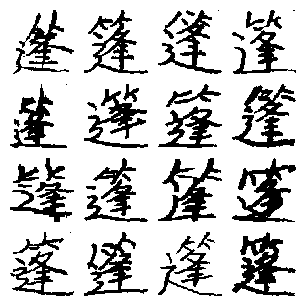 篷篷篷篷
篷篷篷篷
篷篷篷篷
篷篷篷篷